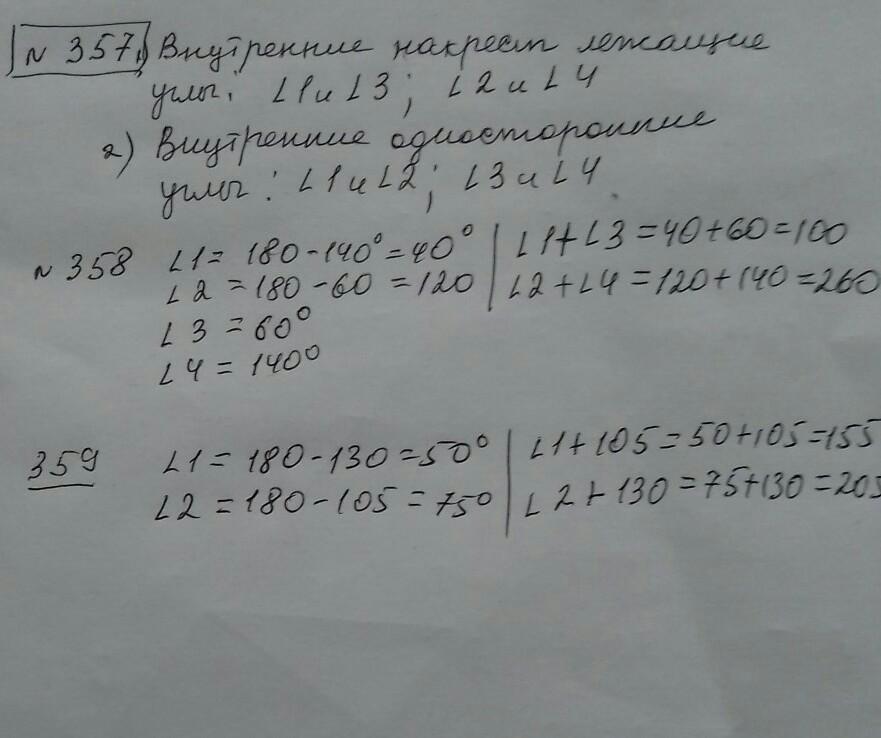 № 357. Внутренние накрест лежащие
углы: ∠1 и ∠3; ∠2 и ∠4
2) Внутренние односторонние
углы: ∠1 и ∠2; ∠3 и ∠4
№ 358 ∠1 = 180 - 140° = 40° | ∠1 + ∠3 = 40 + 60 = 100
∠2 = 180 - 60 = 120 | ∠2 + ∠4 = 120 + 140 = 260
∠3 = 60°
∠4 = 140°
359 ∠1 = 180 - 130 = 50° | ∠1 + 105 = 50 + 105 = 155
∠2 = 180 - 105 = 75° | ∠2 + 130 = 75 + 130 = 205